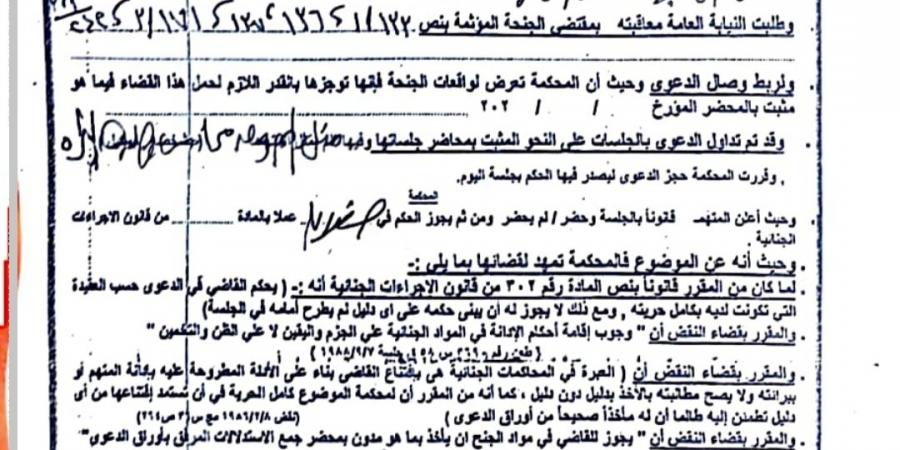 وطلبت النيابة العامة معاقبته بمقتضى الجنحة المؤثمة بنص
ولربط وصال الدعوى وحيث أن المحكمة تعرض لواقعات الجنحة فإنها توجزها بالقدر اللازم لحمل هذا القضاء فيما هو
مثبت بالمحضر المؤرخ / / ٢٠٢
وقد تم تداول الدعوى بالجلسات على النحو المثبت بمحاضر جلساتها وفيها
, وقررت المحكمة حجز الدعوى ليصدر فيها الحكم بجلسة اليوم.
المحكمة
وحيث أعلن المتهم قانوناً بالجلسة وحضر / لم يحضر ومن ثم يجوز الحكم في عملا بالمادة من قانون الاجراءات
الجنائية
وحيث أنه عن الموضوع فالمحكمة تمهد لقضائها بما يلى :-
لما كان من المقرر قانوناً بنص المادة رقم ٣٠٢ من قانون الإجراءات الجنائية أنه :- ( يحكم القاضي في الدعوى حسب العقيدة
التي تكونت لديه بكامل حريته , ومع ذلك لا يجوز له أن يبني حكمه على اى دليل لم يطرح أمامه في الجلسة)
والمقرر بقضاء النقض أن " وجوب إقامة أحكام الإدانة في المواد الجنائية علي الجزم واليقين لا علي الظن والتخمين "
جلسة ١٩٨٨/٩/٧ )
والمقرر بقضاء النقض أن ( العبرة في المحاكمات الجنائية هى باقتناع القاضي بناء على الأدلة المطروحة عليه بإدانة المتهم أو
ببرائته ولا يصح مطالبته بالأخذ بدليل دون دليل , كما أنه من المقرر أن لمحكمة الموضوع كامل الحرية في أن تستمد إقتناعها من أى
دليل تطمئن إليه طالما أن له مأخذاً صحيحاً من أوراق الدعوى ) (نقض ١٩٨٦/٢/٨ مج س ٣ ص ٢٦٤)
والمقرر بقضاء النقض أن " يجوز للقاضي في مواد الجنح أن يأخذ بما هو مدون بمحضر جمع الاستدلالات المرفق بأوراق الدعوى"